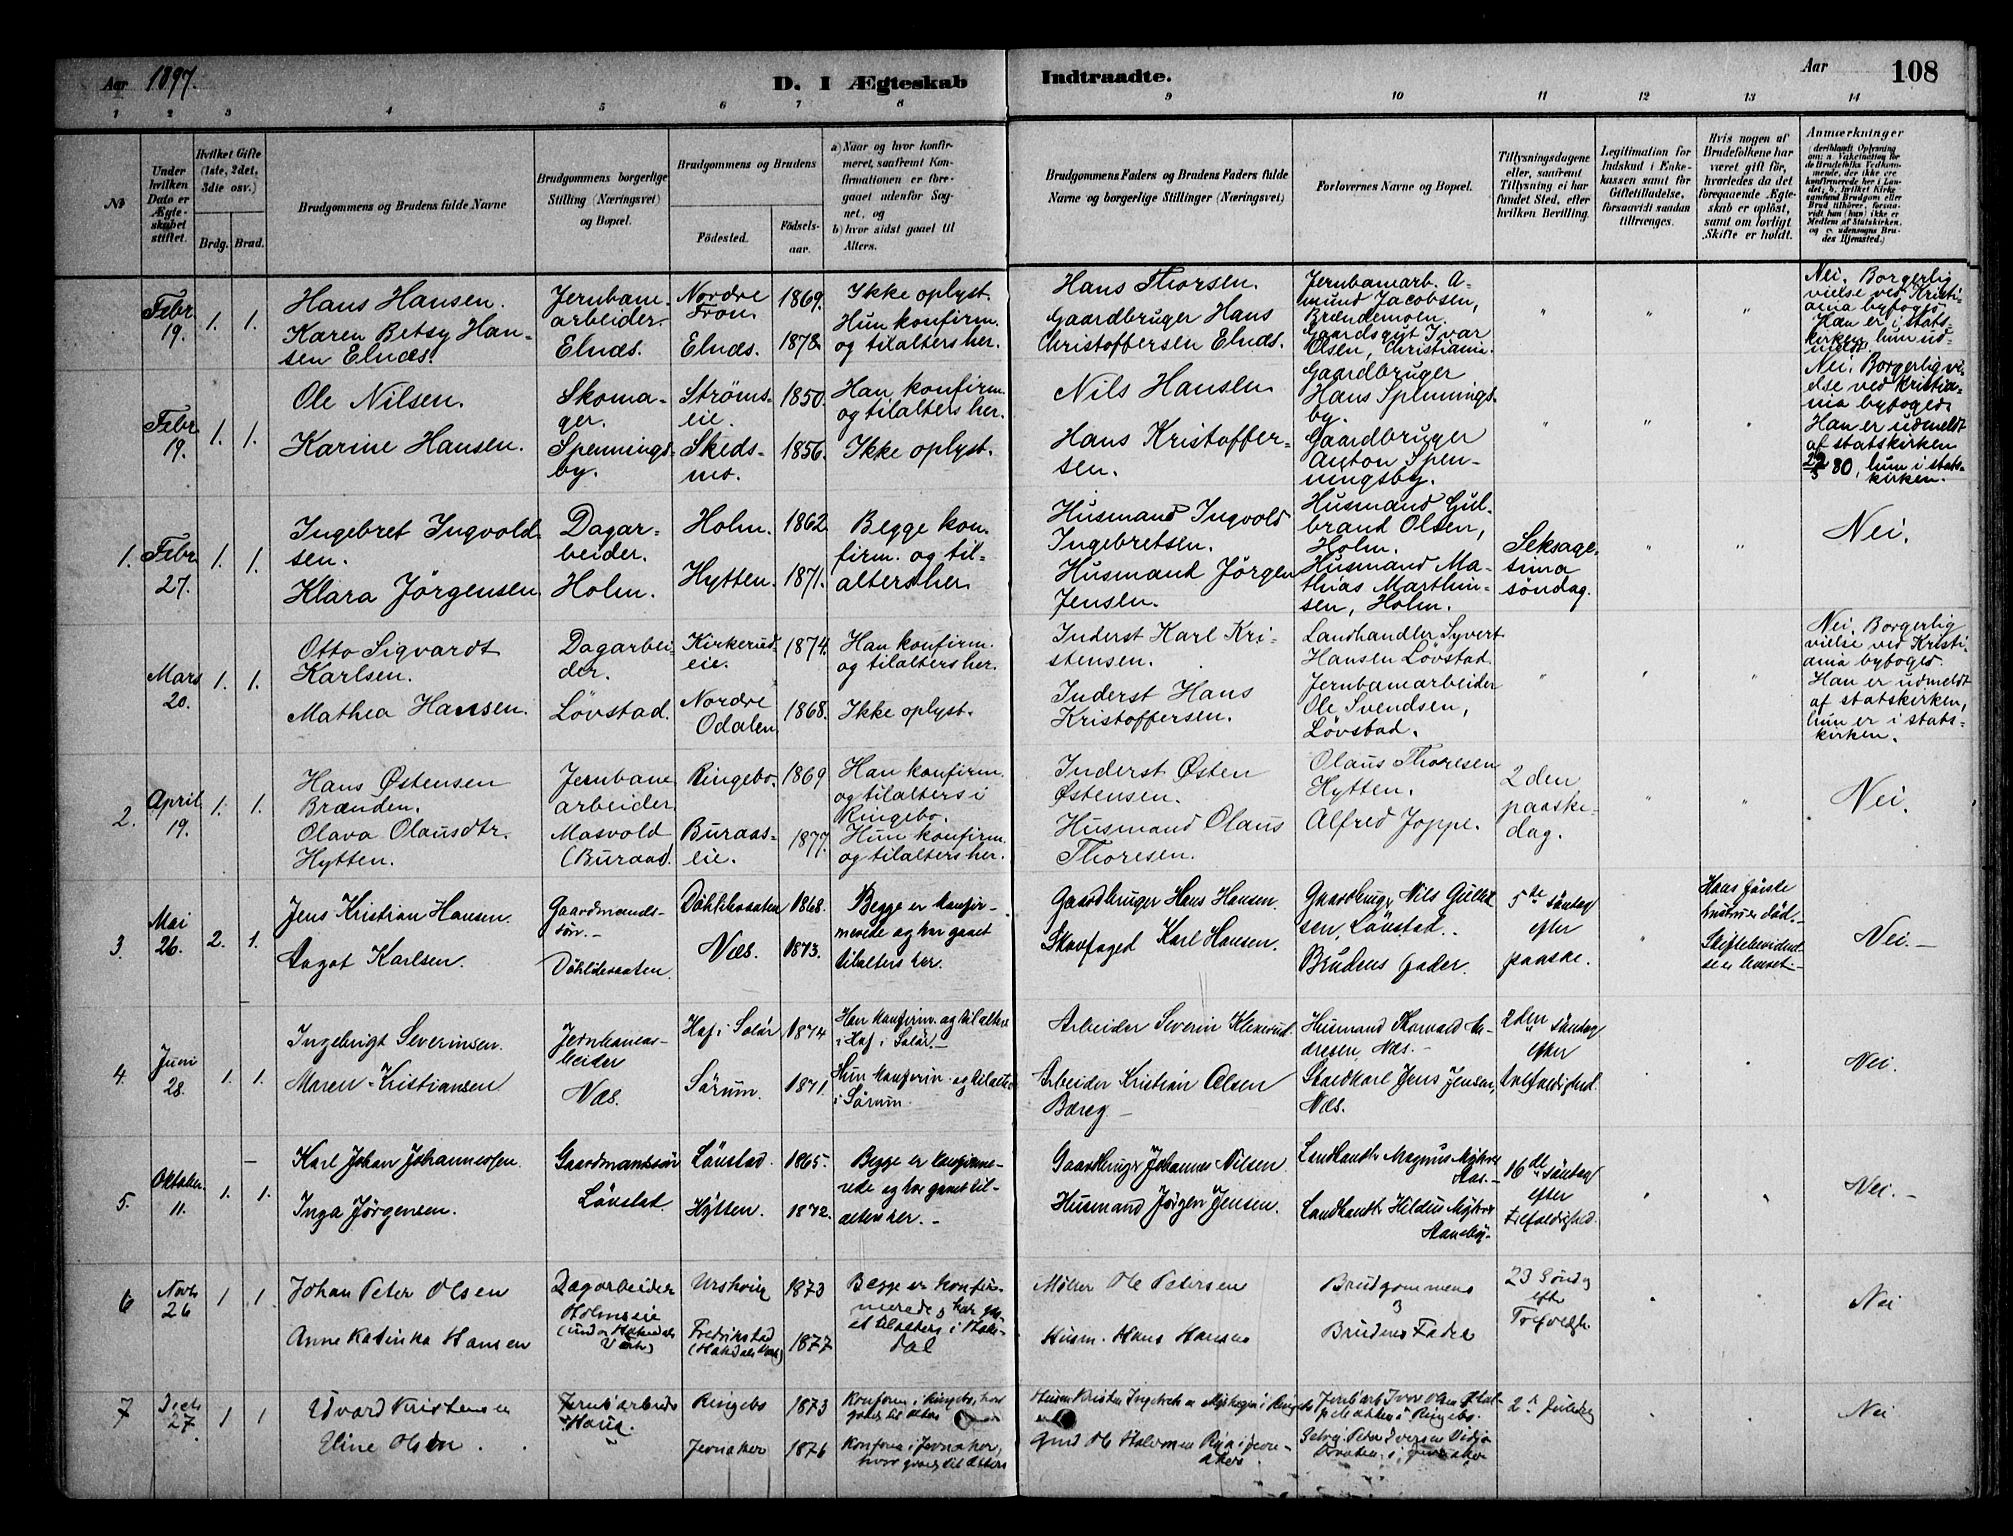 Aar 1897.
D. I Ægteskab Indtraadte.
Aar
108
1 2 3 4 5 6 7 8 9 10 11 12 13 14
No
Under
hvilken
Dato er
Ægte-
skabet
stiftet.
Hvilket Gifte
(1ste, 2det,
3die osv.)
Brdg. Brud.
Brudgommens og Brudens fulde Navne
Brudgommens borgerlige
Stilling (Næringsvei)
og Bopæl.
Brudgommens og Brudens
Fødested.
Fødsels-
aar.
a) Naar og hvor konfir-
meret, saafremt Kon-
firmationen er fore-
gaaet udenfor Sog-
net, og
b) hvor sidst gaaet til
Alters.
Brudgommens Faders og Brudens Faders fulde
Navne og borgerlige Stillinger (Næringsvei)
Forlovernes Navne og Bopæl.
Tillysningsdagene
eller, saafremt
Tillysning ei har
fundet Sted, efter
hvilken Bevilling.
Legitimation for
Indskud i Enke-
kassen samt for
Giftetilladelse,
forsaavidt saadan
tiltrænges.
Hvis nogen af
Brudefolkene har
været gift før,
hvorledes da det
foregaaende Ægte-
skab er opløst,
samt om lovligt
Skifte er holdt.
Anmærkninger
(deriblandt Oplysning
om: a. Vakcination for
de Brudefolks Vedkom-
mende, der ikke ere
konfirmerede her i Lan-
det; b. hvilket Kirke-
samfund Brudgom eller
Brud tilhører, forsaa-
vidt han (hun) ikke er
Medlem af Statskirken,
og c. udensogns Bru-
des Hjemsted.)
Febr.
19.
1. 1.
Hans Hansen.
Karen Betsy Han-
sen Elnæs.
Jernbane-
arbeider.
Elnæs.
Nordre
Fron.
Elnæs.
1869.
1878.
Ikke oplyst.
Hun konfirm.
og tilalters her.
Hans Thorsen.
Gaardbruger Hans
Christoffersen Elnæs.
Jernbanearb. A-
mund Jacobsen,
Brændemoen.
Gaardsgut Ivar
Olsen, Christiania.
" " "
Nei. Borgerlig
vielse ved Kristi-
ania byfoged.
Han er i stats-
kirken, hun ud-
meldt.
Febr.
19.
1. 1.
Ole Nilsen.
Karine Hansen.
Skoma-
ger.
Spennings-
by.
Strøms-
eie.
Skeds-
mo.
1850.
1856.
Han konfirm.
og tilalters her.
Ikke oplyst.
Nils Hansen
Hans Kristoffer-
sen.
Gaardbruger
Hans Spennings-
by.
Gaardbruger
Anton Spen-
ningsby.
" " "
Nei. Borgerlig vi-
else ved Kristia-
nia byfoged.
Han er udmeldt
af statskirken
80, hun i stats-
kirken.
1.
Febr.
27.
1. 1.
Ingebret Ingvold-
sen.
Klara Jörgensen
Dagar-
beider.
Holm.
Holm.
Hytten.
1862
1871.
Begge kon-
firm. og til-
alters her.
Husmand Ingvold
Ingebretsen.
Husmand Jörgen
Jensen.
Husmand Gul-
brand Olsen,
Holm.
Husmand Ma-
thias Marthin-
sen, Holm.
Seksage-
sima
söndag.
" "
Nei.
Mars
20.
1. 1.
Otto Sigvardt
Karlsen.
Mathea Hansen.
Dagarbei-
der.
Lövstad.
Kirkerud-
eie.
Nordre
Odalen
1874.
1868.
Han konfirm.
og tilalters her.
Ikke oplyst.
Inderst Karl Kri-
stensen.
Inderst Hans
Kristoffersen.
Landhandler Syvert
Hansen Lövstad.
Jernbanearbeider
Ole Svendsen,
Lövstad.
" " "
Nei. Borgerlig
vielse ved Kristi-
ania byfoged.
Han er udmeldt
af statskirken,
hun er i stats-
kirken.
2.
April
19.
1. 1.
Hans Østensen
Brænden.
Olava Olausdtr.
Hytten.
Jernbane
arbeider
Masvold
(Buraas).
Ringebo.
Buraas-
eie.
1869
1877.
Han konfirm.
og tilalters i
Ringebo.
Hun konfirm.
og tilalters her.
Inderst Østen
Østensen.
Husmand Olaus
Thoresen.
Olaus Thoresen
Hytten.
Alfred Joppe.
2den
paaske-
dag.
" "
Nei.
3.
Mai
26.
2. 1.
Jens Kristian Hansen.
Aagot Karlsen.
Gaardmands-
sön.-
Næs.
1868.
1873.
Begge er konfir-
merede og har gaaet
tilalters her.
Gaardbruger Hans Hansen.
Skovfoged Karl Hansen.
Gaardbruger Nils Gullik-
sen, Lövstad.
Brudens fader.
5te söndag
efter
paaske.
Hans förste
hustru er död.
Skiftebevidnel-
se er leveret.
Nei.-
4.
Juni
28.
1. 1.
Ingebrigt Severinsen.
Maren Kristiansen
Jernbanear-
beider
Næs.
Hof i Solör
Sörum.
1874
1871.
Han konfirm. og tilalters
i Hof i Solör.-
Hun konfirm. og tilalters
i Sörum.
Arbeider Severin
Arbeider Kristian Olsen
Bæreg.-
Husmand Thorvald An-
dresen, Næs.-
Staldkarl Jens Jensen,
Næs.
2den söndag
efter
trefoldighed.
Nei.
5.
Oktober
11.
1. 1.
Karl Johan Johannessen.
Inga Jörgensen.
Gaardmandssön
Lövstad.
Lövstad.
Hytten.
1865.
1872.
Begge er konfirme-
rede og har gaaet til-
alters her.-
Gaardbruger Johannes Nilsen
Husmand Jörgen Jensen.
Landhandl. Magnus
Aas.-
Landhandl. Hildus
Aaneby.
16de söndag
efter
trefoldighed.
Nei.-
6
Novb
26
1 1
Johan Peter Olsen
Anne Katinka Hansen
Dagarbeider
Holmseie
(under Hakedals
Værk)
Urskoug
Fredrikstad
(Hakedals Værk)
1873
1877
Begge er konfir-
merede og har gaa-
et tilalters i Hake-
dal
Møller Ole Petersen
Husm. Hans Hansen
Brudgommens
og
Brudens Fader
23 Søndag
efter
Trefoldigh.
Nei
7
Decb
27
1 1
Edvard Kristensen
Eline Olsen
Jernb.arbeider
Ringebo
Jevnaker
1873
1876
Konfirm. i Ringebo, hvor
gaaet til Alters
Konfirm. i Jevnaker,
hvor gaaet til Alters
2d Juledag
Nei